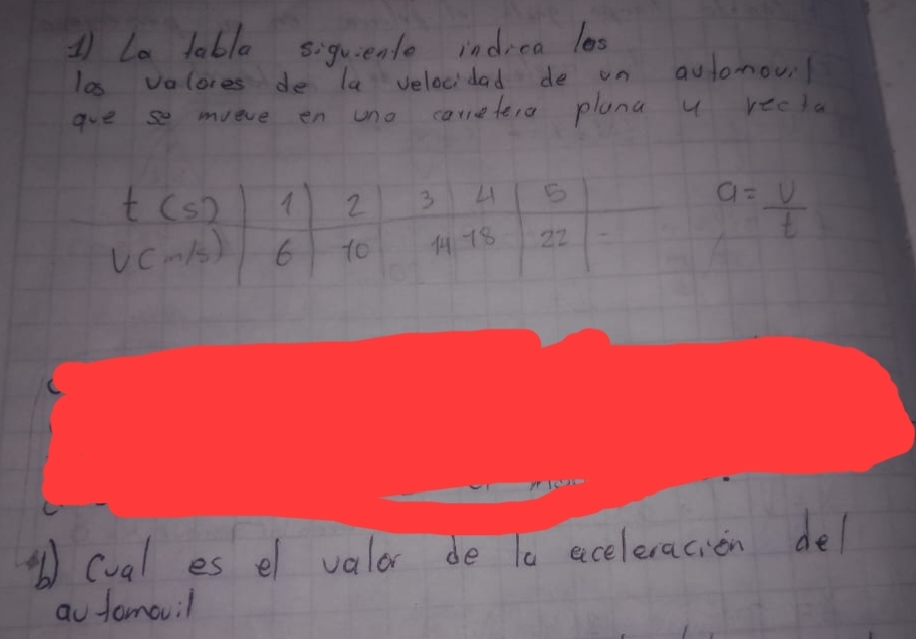 1) La tabla siguiente indica los
los valores de la velocidad de un automovil
que se mueve en una carretera plana y recta
t(s) 1 2 3 4 5
V(m/s) 6 10 14 18 22 -
a= v
t
b) Cual es el valor de la aceleración del
automovil